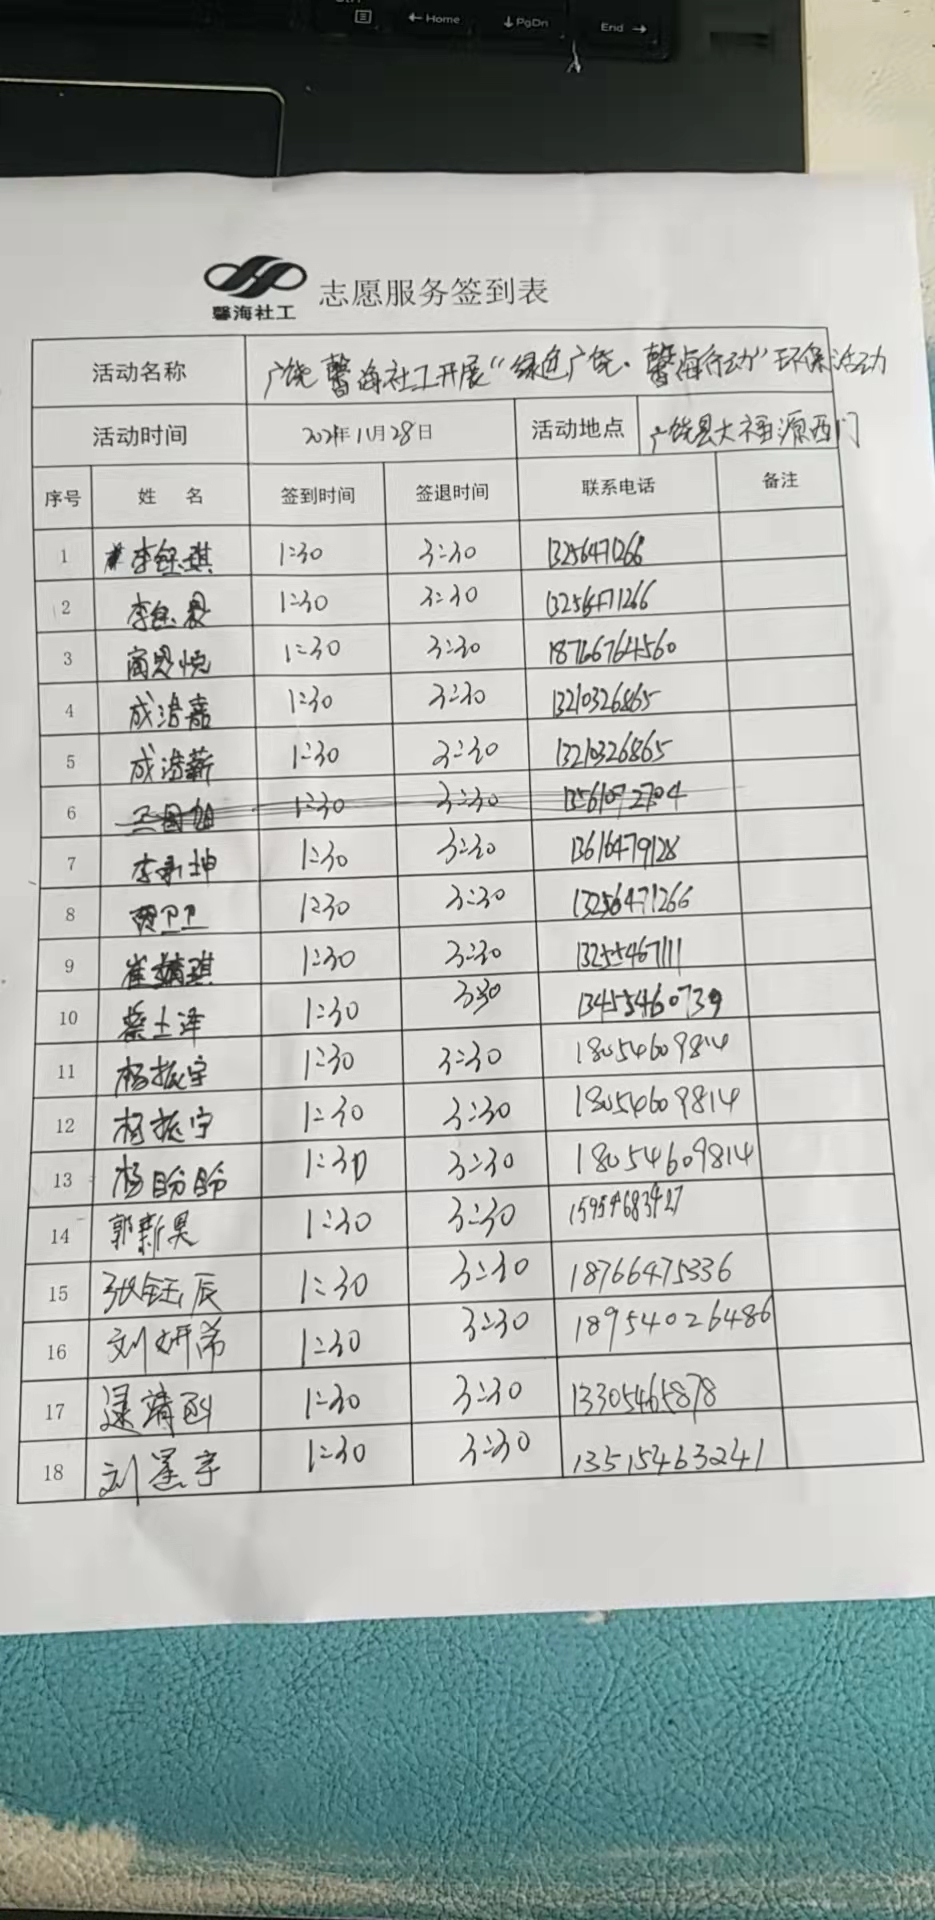 ← Home
↓ PgDn
End →
馨海社工 志愿服务签到表
活动名称 广饶馨海社工开展“绿色广饶·馨海行动”环保活动
活动时间 2021年11月28日 活动地点 广饶县大福源西门
序号 姓 名 签到时间 签退时间 联系电话 备注
1 李钰琪 1:30 3:30 13256471266
2 李钰 1:30 3:30 13256471266
3 商恩悦 1:30 3:30 18766764560
4 成浩嘉 1:30 3:30 13210326865
5 成浩薪 1:30 3:30 13210326865
6 1:30 3:30 13561072704
7 李承坤 1:30 3:30 13616479128
8 贾卫卫 1:30 3:30 13256471266
9 崔婧琪 1:30 3:30 13255467111
10 蔡士泽 1:30 3:30 13455460739
11 杨振宇 1:30 3:30 18054609814
12 杨振宁 1:30 3:30 18054609814
13 杨盼盼 1:30 3:30 18054609814
14 郭新昊 1:30 3:30 15954683427
15 张钰辰 1:30 3:30 18766475336
16 刘妍希 1:30 3:30 18954026486
17 逯靖函 1:30 3:30 13305465878
18 刘墨宇 1:30 3:30 13515463241